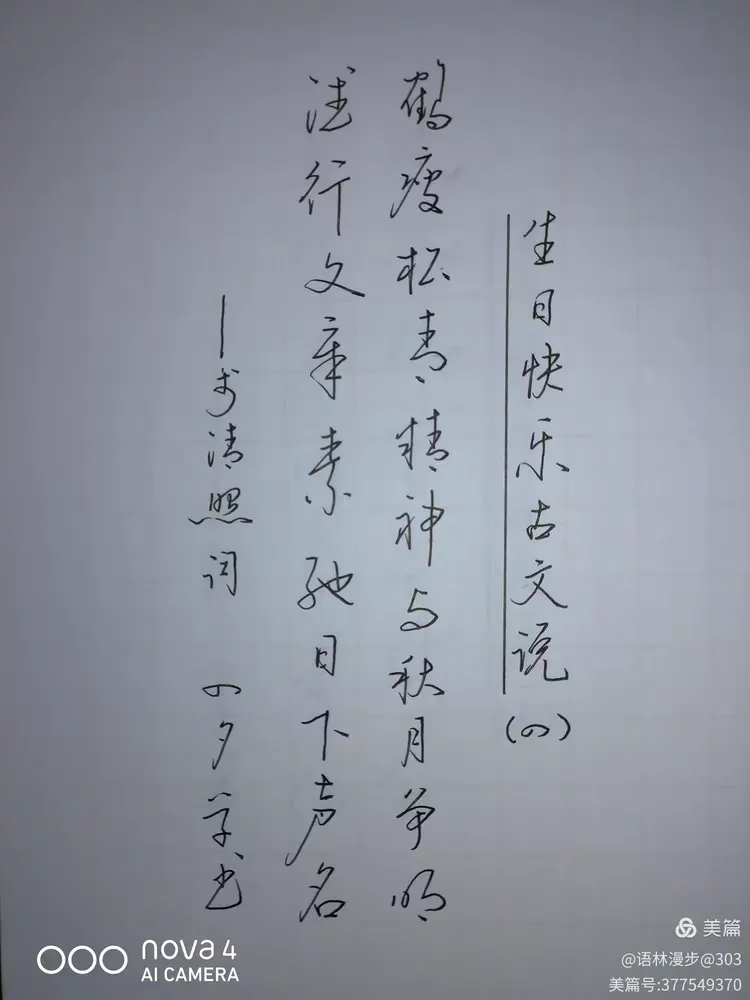 生日快乐古文说(四)
鹤瘦松青精神与秋月争明
德行文章素驰日下声名
—李清照词 四夕学书
nova 4
AI CAMERA
美篇
@语林漫步@303
美篇号:377549370